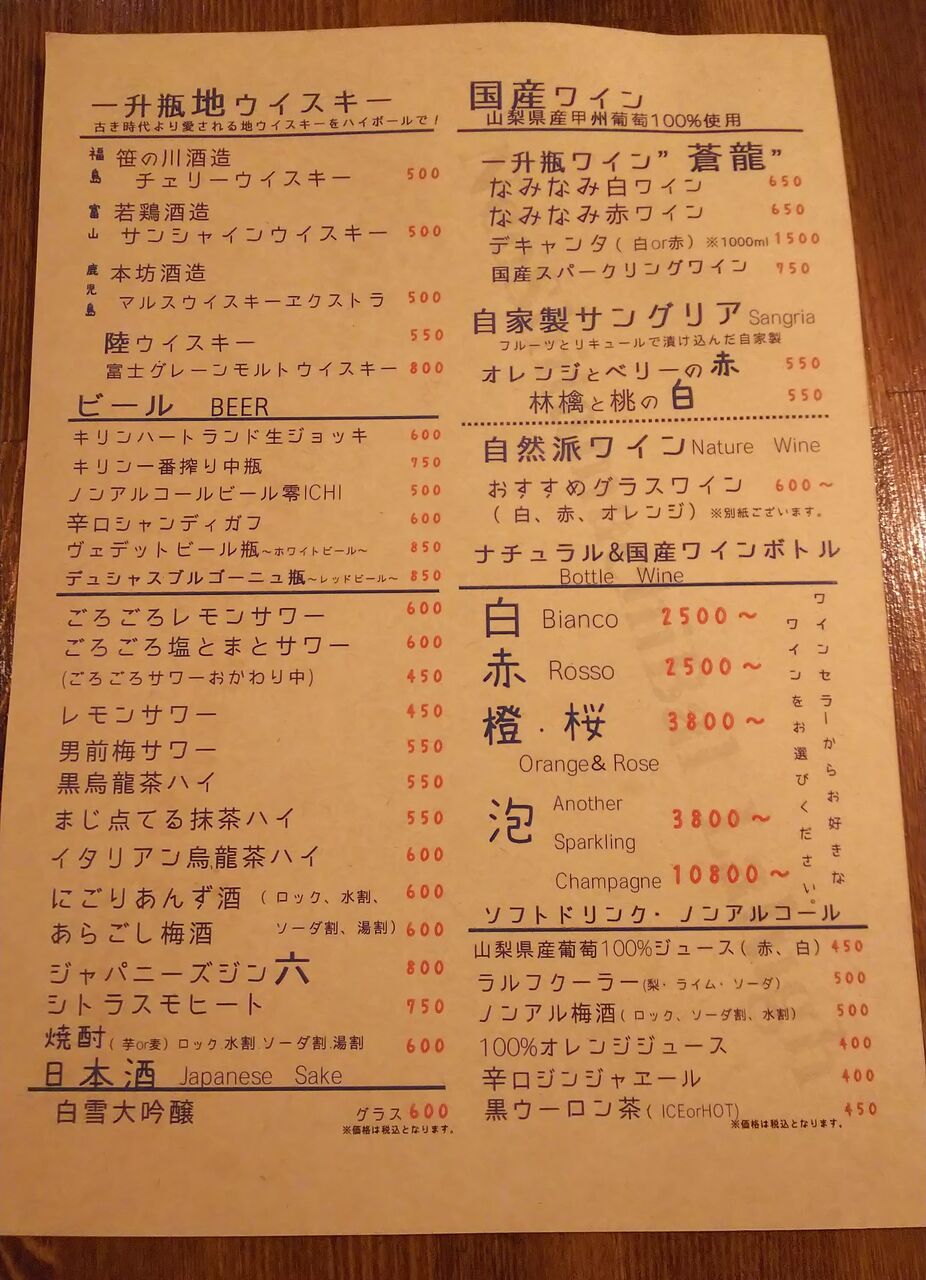 一升瓶地ウイスキー
古き時代より愛される地ウイスキーをハイボールで！
福島 笹の川酒造
チェリーウイスキー 500
富山 若鶏酒造
サンシャインウイスキー 500
鹿児島 本坊酒造
マルスウイスキーエクストラ 500
陸ウイスキー 550
富士グレーンモルトウイスキー 800
ビール BEER
キリンハートランド生ジョッキ 600
キリン一番搾り中瓶 750
ノンアルコールビール零ICHI 500
辛口シャンディガフ 600
ヴェデットビール瓶～ホワイトビール～ 850
デュシャスブルゴーニュ瓶～レッドビール～ 850
ごろごろレモンサワー 600
ごろごろ塩とまとサワー 600
(ごろごろサワーおかわり中) 450
レモンサワー 450
男前梅サワー 550
黒烏龍茶ハイ 550
まじ点てる抹茶ハイ 550
イタリアン烏龍茶ハイ 600
にごりあんず酒 (ロック、水割、 600
あらごし梅酒 ソーダ割、湯割) 600
ジャパニーズジン六 800
シトラスモヒート 750
焼酎(芋or麦) ロック.水割.ソーダ割.湯割 600
日本酒 Japanese Sake
白雪大吟醸 グラス600
※価格は税込となります。
国産ワイン
山梨県産甲州葡萄100%使用
一升瓶ワイン”蒼龍”
なみなみ白ワイン 650
なみなみ赤ワイン 650
デキャンタ(白or赤) ※1000ml 1500
国産スパークリングワイン 750
自家製サングリア Sangria
フルーツとリキュールで漬け込んだ自家製
オレンジとベリーの赤 550
林檎と桃の白 550
自然派ワインNature Wine
おすすめグラスワイン 600～
(白、赤、オレンジ) ※別紙ございます。
ナチュラル&国産ワインボトル
Bottle Wine
白 Bianco 2500～
赤 Rosso 2500～
橙・桜 3800～
Orange& Rose
泡 Another
Sparkling 3800～
Champagne 10800～
ワインセラーからお好きな
ワインをお選びください。
ソフトドリンク・ノンアルコール
山梨県産葡萄100%ジュース(赤、白) 450
ラルフクーラー(梨・ライム・ソーダ) 500
ノンアル梅酒(ロック、ソーダ割、水割) 500
100%オレンジジュース 400
辛口ジンジャエール 400
黒ウーロン茶(ICEorHOT) 450
※価格は税込となります。